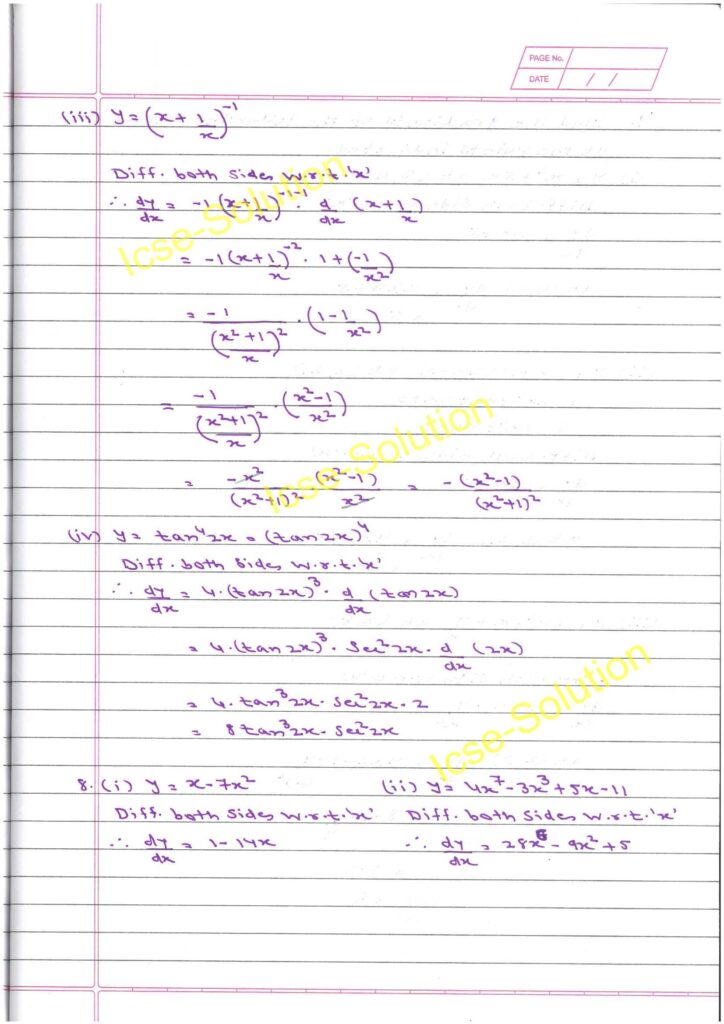 PAGE No.
DATE / /
(iii) y = (x + 1/x)^-1
Diff. both sides w.r.t.'x'
∴ dy/dx = -1 (x + 1/x)^-1-1 · d/dx (x + 1/x)
= -1 (x + 1/x)^-2 · 1 + (-1/x²)
= -1/((x²+1)/x)² · (1 - 1/x²)
= -1/((x²+1)/x)² · (x²-1/x²)
= -x²/(x²+1)² (x²-1)/x² = -(x²-1)/(x²+1)²
(iv) y = tan⁴2x = (tan2x)⁴
Diff. both sides w.r.t.'x'
∴ dy/dx = 4·(tan2x)³ · d/dx (tan2x)
= 4·(tan2x)³ · sec²2x · d/dx (2x)
= 4·tan³2x · sec²2x · 2
= 8tan³2x · sec²2x
8. (i) y = x - 7x² (ii) y = 4x⁷ - 3x³ + 5x - 11
Diff. both sides w.r.t.'x' Diff. both sides w.r.t.'x'
∴ dy/dx = 1 - 14x ∴ dy/dx = 28x⁶ - 9x² + 5
Icse-Solution
Icse-Solution
Icse-Solution